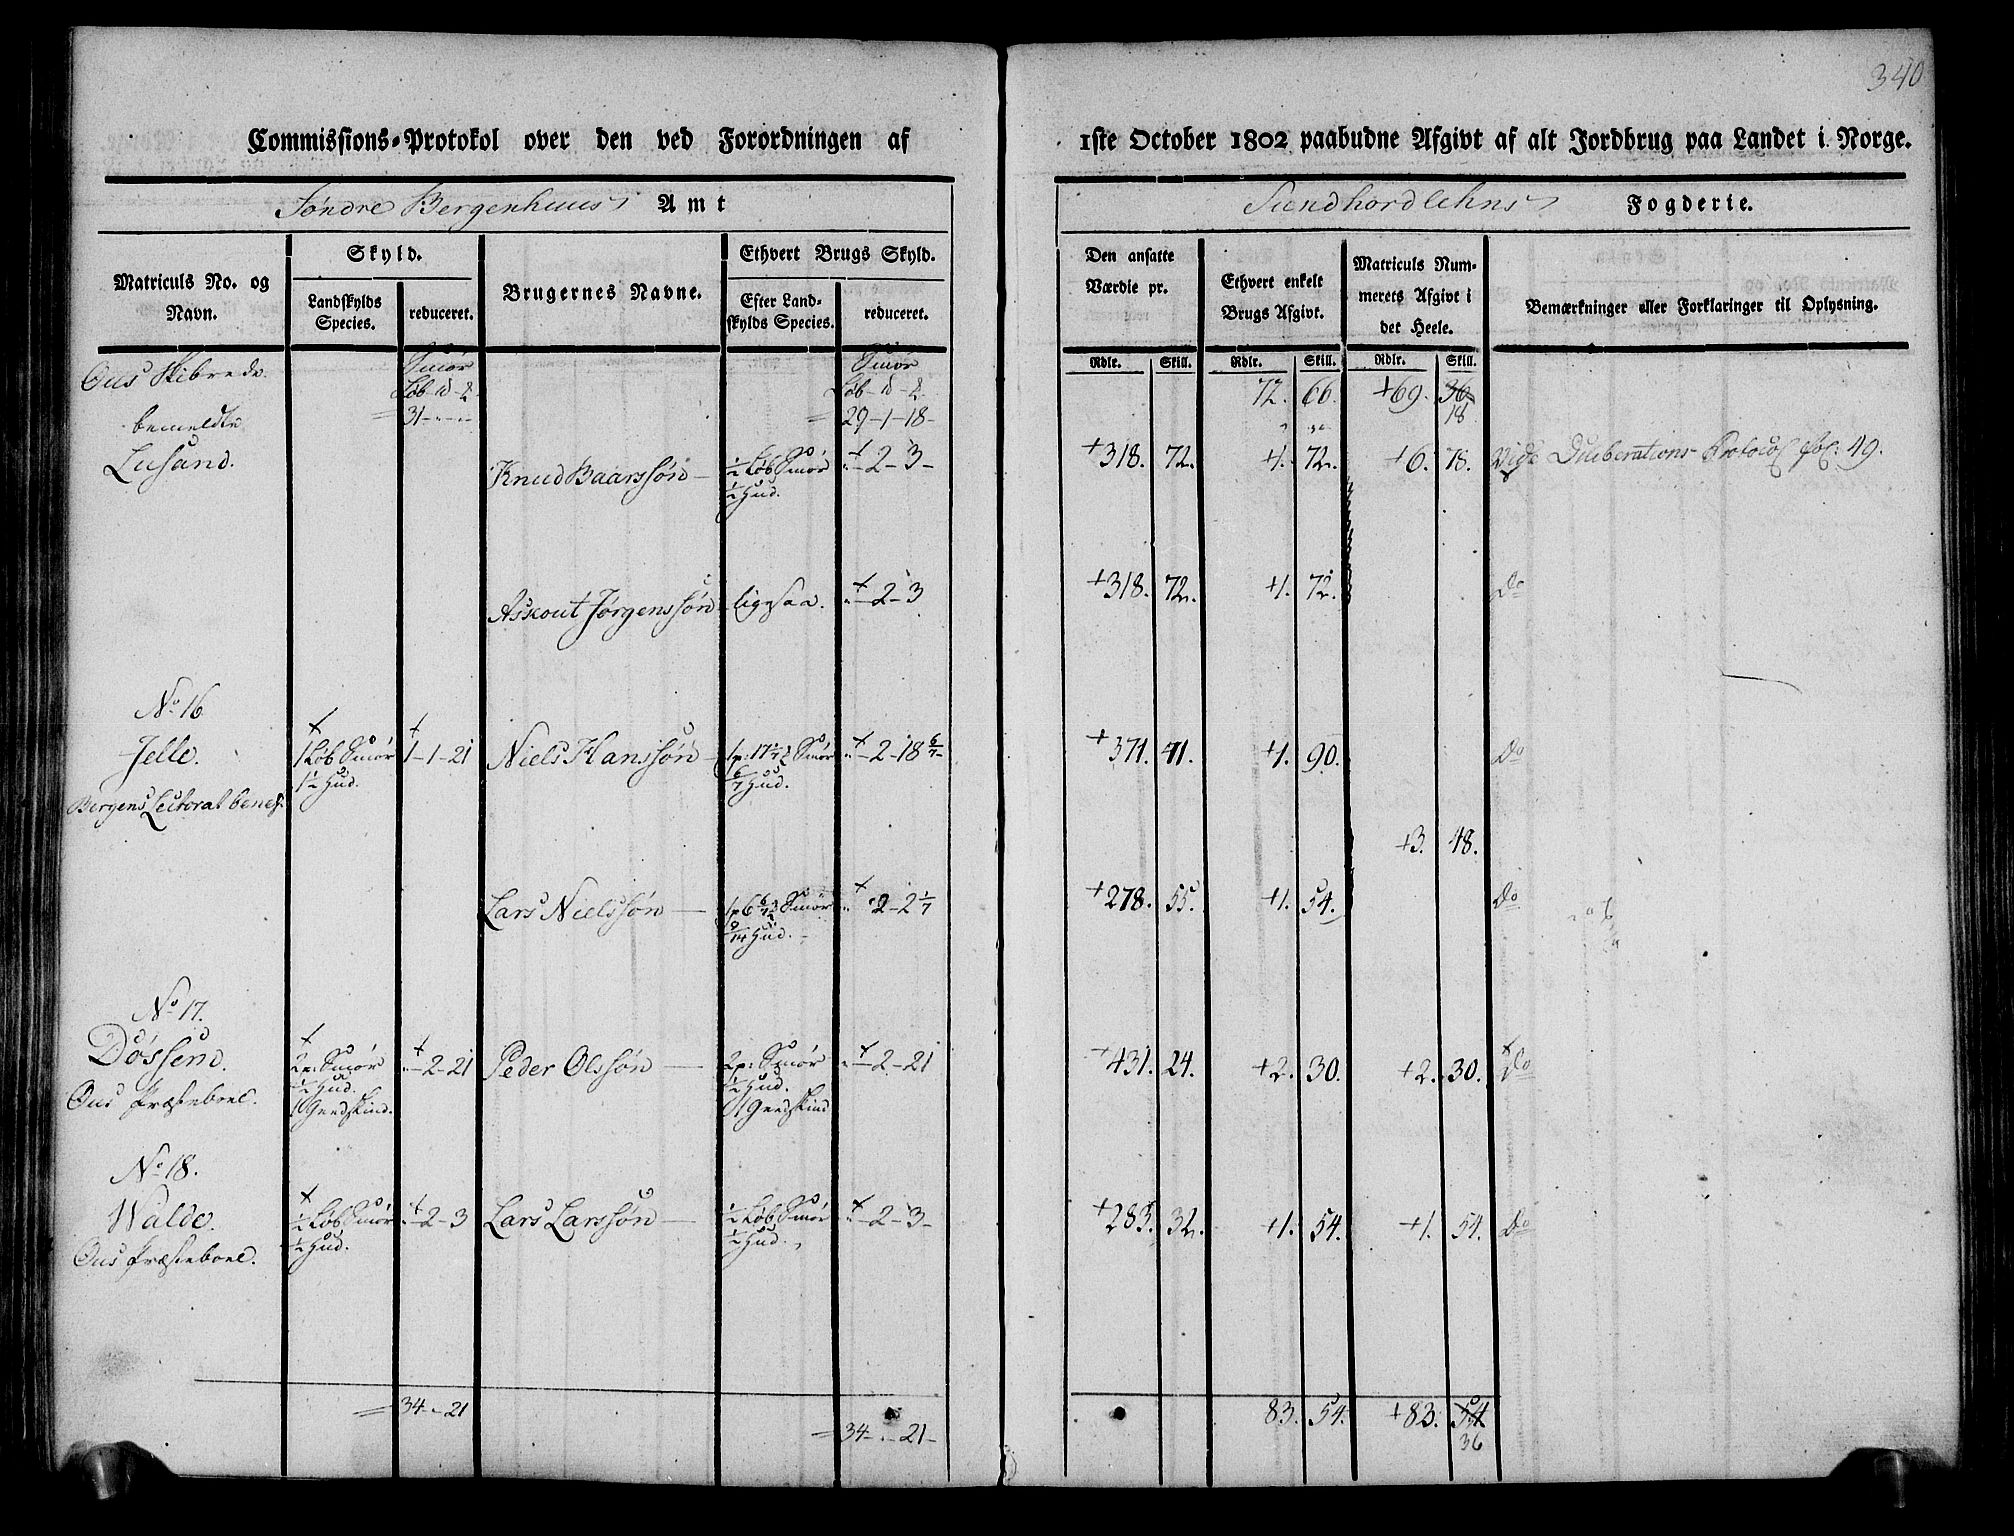 340
Commissions-Protokol over den ved Forordningen af 1ste October 1802 paabudne Afgivt af alt Jordbrug paa Landet i Norge.
Søndre Bergenhuus Amt
Sundhordlehns Fogderie.
Matriculs No. og Navn.
Skyld.
Landskylds Species.
reduceret.
Brugernes Navne.
Ethvert Brugs Skyld.
Efter Landskylds Species.
reduceret.
Den ansatte Værdie pr.
Ethvert enkelt Brugs Afgivt.
Matriculs Nummerets Afgivt i det Heele.
Bemærkninger eller Forklaringer til Oplysning.
Rdlr. Skill. Rdlr. Skill. Rdlr. Skill.
Ous Skibrede
Smør Smør
Løb
31
29-1-18-
72. 66. +69. 36
18
bemeldte
Lusand.
Knud Baarssøn — ½ Løb Smør 2-3- +318. 72. +1. 72. +6. 78. Vide Deliberations-Protocol fol: 49.
½ Hud.
Askout Jørgenssøn ligesaa. 2-3 +318. 72. +1. 72. Do
No 16
Jelle. 1 Løb Smør 1-1-21 Niels Hanssøn 2-18 6/7 +371. 41. +1. 90. Do
1½ Hud. 6/7 Hud.
Bergens Lectorat benef.
+3. 48.
Lars Nielssøn — 2-2 1/7 +278. 55. +1. 54. Do
9/14 Hud.
No 17.
Døssen. 2p: Smør 2-21 Peder Olssøn — 2p: Smør 2-21 +431. 24. +2. 30. +2. 30. Do
½ Hud. ½ Hud.
Ous Præsteboel. 1 Geedskind. 1 Geedskind
No 18.
Walde. ½ Løb Smør 2-3 Lars Larssøn — ½ Løb Smør 2-3- +283. 32. +1. 54. +1. 54. Do
½ Hud. ½ Hud.
Ous Præsteboel.
34-21
34-21-
83. 54. +83. 54
36